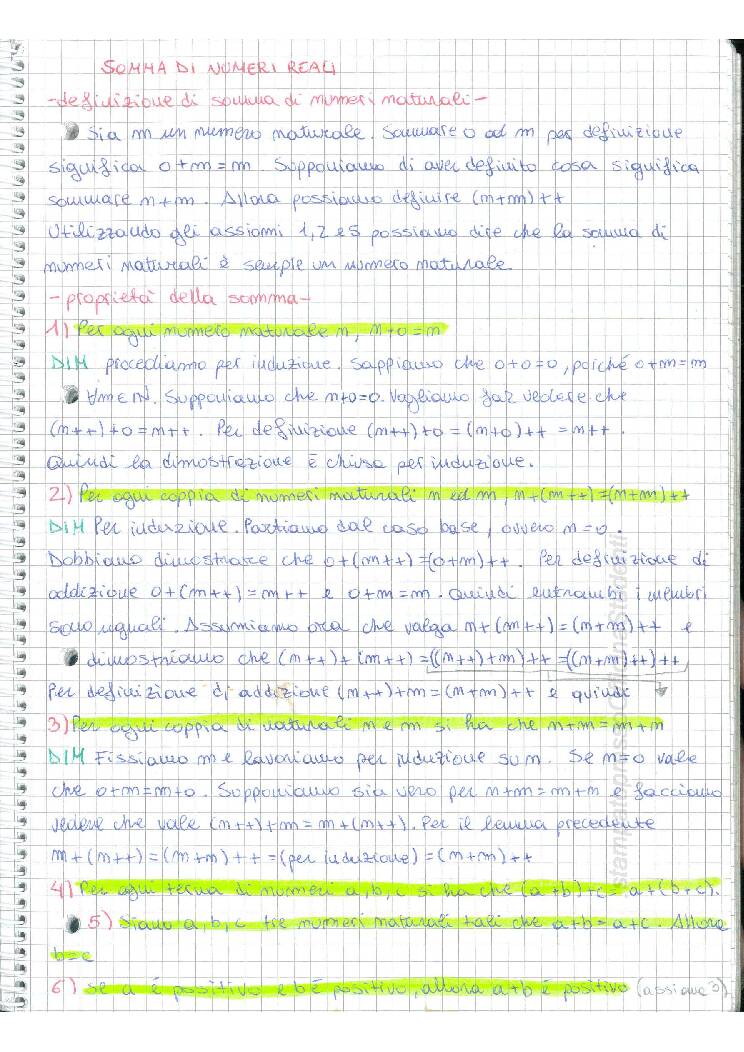 SOMMA DI NUMERI REALI
-definizione di somma di numeri naturali-
Sia m un numero naturale. Sommare 0 ad m per definizione
significa 0+m=m. Supponiamo di aver definito cosa significa
sommare n+m. Allora possiamo definire (n+m)++
Utilizzando gli assiomi 1,2 e 5 possiamo dire che la somma di
numeri naturali è sempre un numero naturale.
-proprietà della somma-
1) Per ogni numero naturale n, n+0=n
DIM procediamo per induzione. Sappiamo che 0+0=0, poiché 0+m=m
∀m∈ℕ. Supponiamo che n+0=0. Vogliamo far vedere che
(n++)+0=n++. Per definizione (n++)+0=(n+0)++=n++.
Quindi la dimostrazione è chiusa per induzione.
2) Per ogni coppia di numeri naturali n ed m, n+(m++)=(n+m)++
DIM Per induzione. Partiamo dal caso base, ovvero n=0.
Dobbiamo dimostrare che 0+(m++)=(0+m)++. Per definizione di
addizione 0+(m++)=m++ e 0+m=m. Quindi entrambi i membri
sono uguali. Assumiamo ora che valga n+(m++)=(n+m)++ e
dimostriamo che (n++)+(m++)=((n++)+m)++=((n+m)++)++
Per definizione di addizione (n++)+m=(n+m)++ e quindi
3) Per ogni coppia di naturali n e m si ha che n+m=m+n
DIM Fissiamo m e lavoriamo per induzione su n. Se n=0 vale
che 0+m=m+0. Supponiamo sia vero per n+m=m+n e facciamo
vedere che vale (n++)+m=m+(n++). Per il lemma precedente
m+(n++)=(m+n)++=(per induzione)=(n+m)++
4) Per ogni terna di numeri a,b,c si ha che (a+b)+c=a+(b+c).
5) Siano a,b,c tre numeri naturali tali che a+b=a+c. Allora
b=c
6) Se a è positivo e b è positivo, allora a+b è positivo (assioma 3)